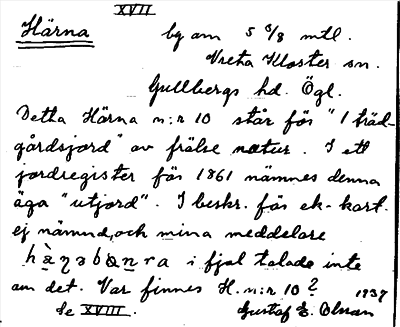 XVII
Härna by om 5 5/8 mtl.
Vreta Kloster sn.
Gullbergs hd. Ögl.
Detta Härna n:r 10 står för "1 träd-
gårdsjord" av frälse natur. I ett
jordregister för 1861 nämnes denna
äga "utjord". I beskr. för ek-kart.
ej nämnd, och mina meddelare
i fjol talade inte
om det. Var finnes H. n:r 10?
Se XVIII. Gustaf E. Olsson 1937